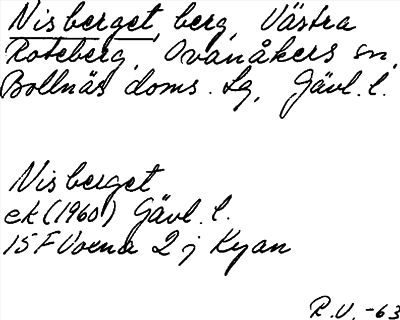 Nisberget, berg, Västra
Roteberg, Ovanåkers sn,
Bollnäs doms. lg, Gävl. l.
Nisberget
ek (1960) Gävl. l.
15F Voxna 2 j Kyan
R.V. -63